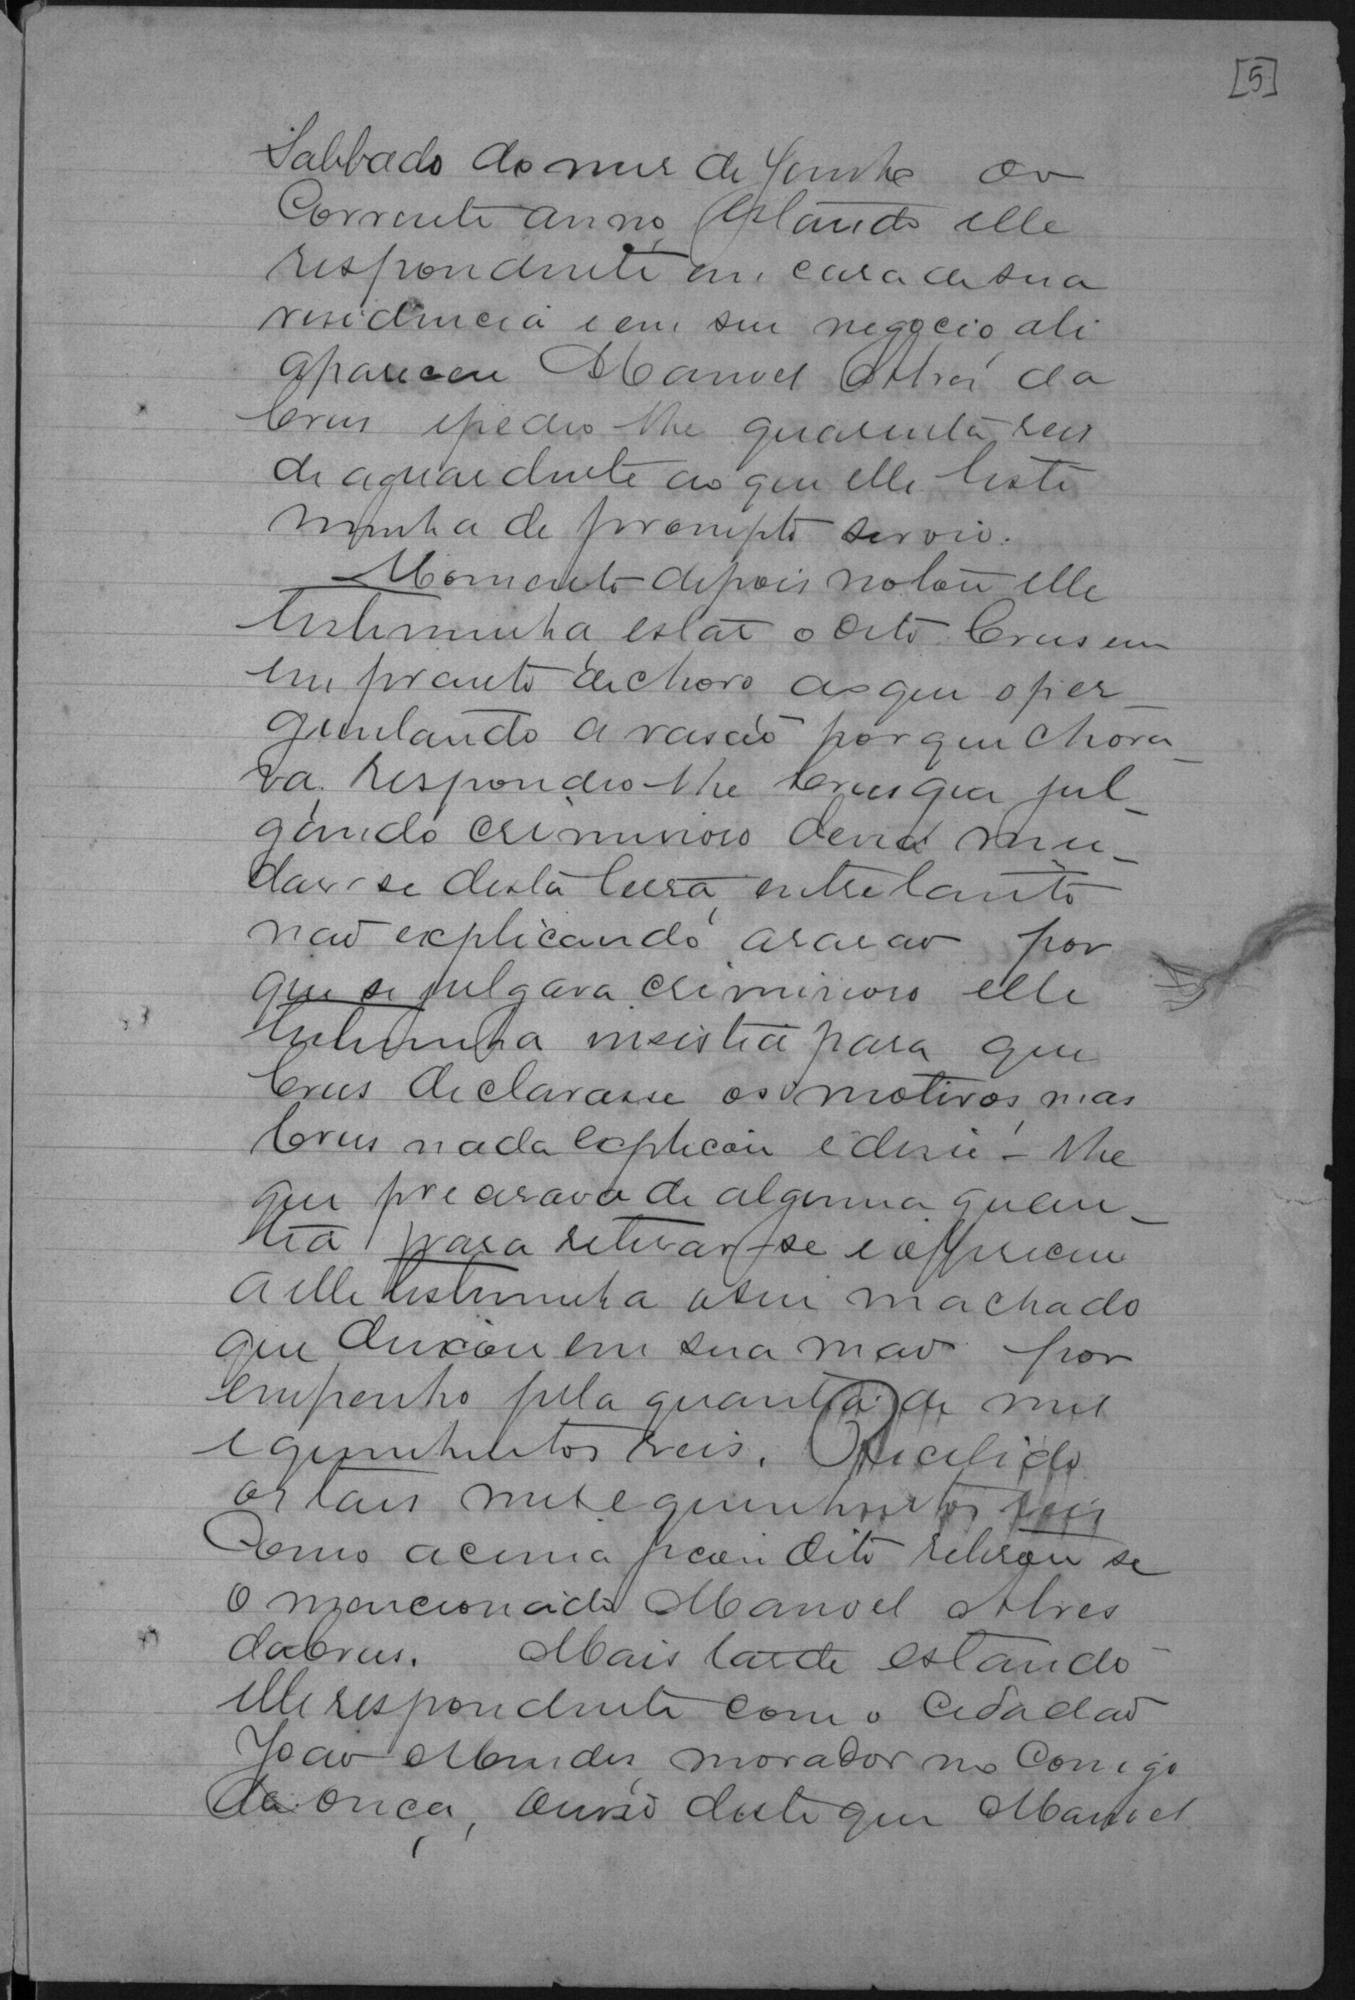 [5]
Sabbado do mes de Junho do
Corrente anno, Estando elle
respondente em casa de sua
residencia e em seu negocio ali
apareceu Manoel Alves da
Crus e pedio-lhe quarenta reis
de aguardente ao que elle teste
munha de prompto servio.
Momento depois notou elle
testemunha estar o dito Crus em
em pranto de choro ao que o per_
guntando a rasaõ porque chora_
va. respondeo-lhe Crus que jul_
gando criminoso devia mu_
dar-se desta terra, entretanto
naõ explicando a rasaõ por
que se julgava criminoso elle
testemunha insistia para que
Crus declarasse os motivos, mas
Crus nada explicou e disse-lhe
que precisava de alguma quan_
tia para retirar-se e offereceu
a elle testemunha o seu machado
que deixou em sua maõ por
empenho pela quantia de mil
e quinhentos reis. Recebido
os taes mil e quinhentos reis
Como acima ficou dito retirou se
o mencionado Manoel Alves
da Crus. Mais tarde estando
elle respondente com o Cidadaõ
Joaõ Mendes morador no Corrego
da onça, ouvio deste que Manoel